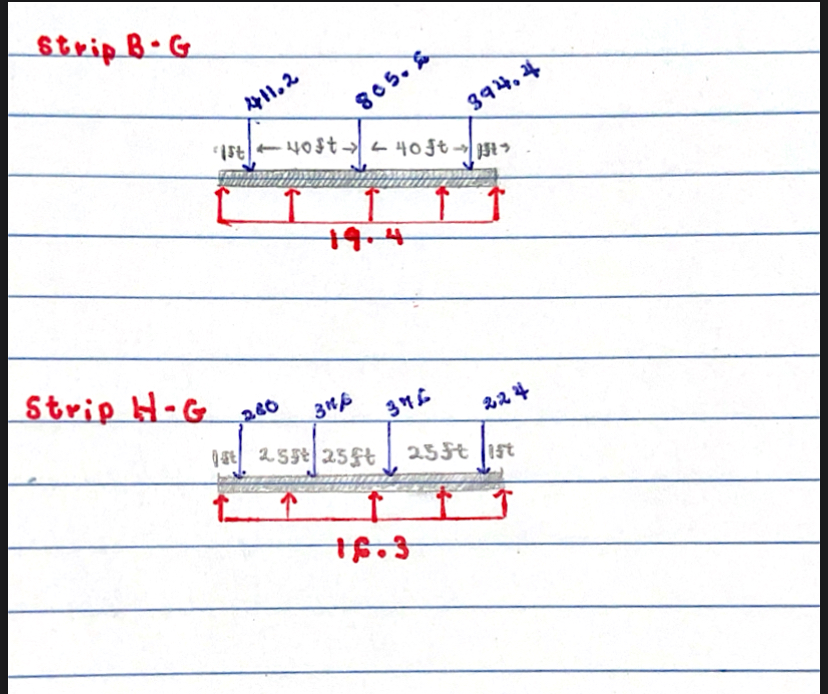 Strip B-G
411.2 805.6 394.4
1ft 40ft 40ft 1ft
19.4
Strip H-G
224
1ft 25ft 25ft 25ft 1ft
16.3